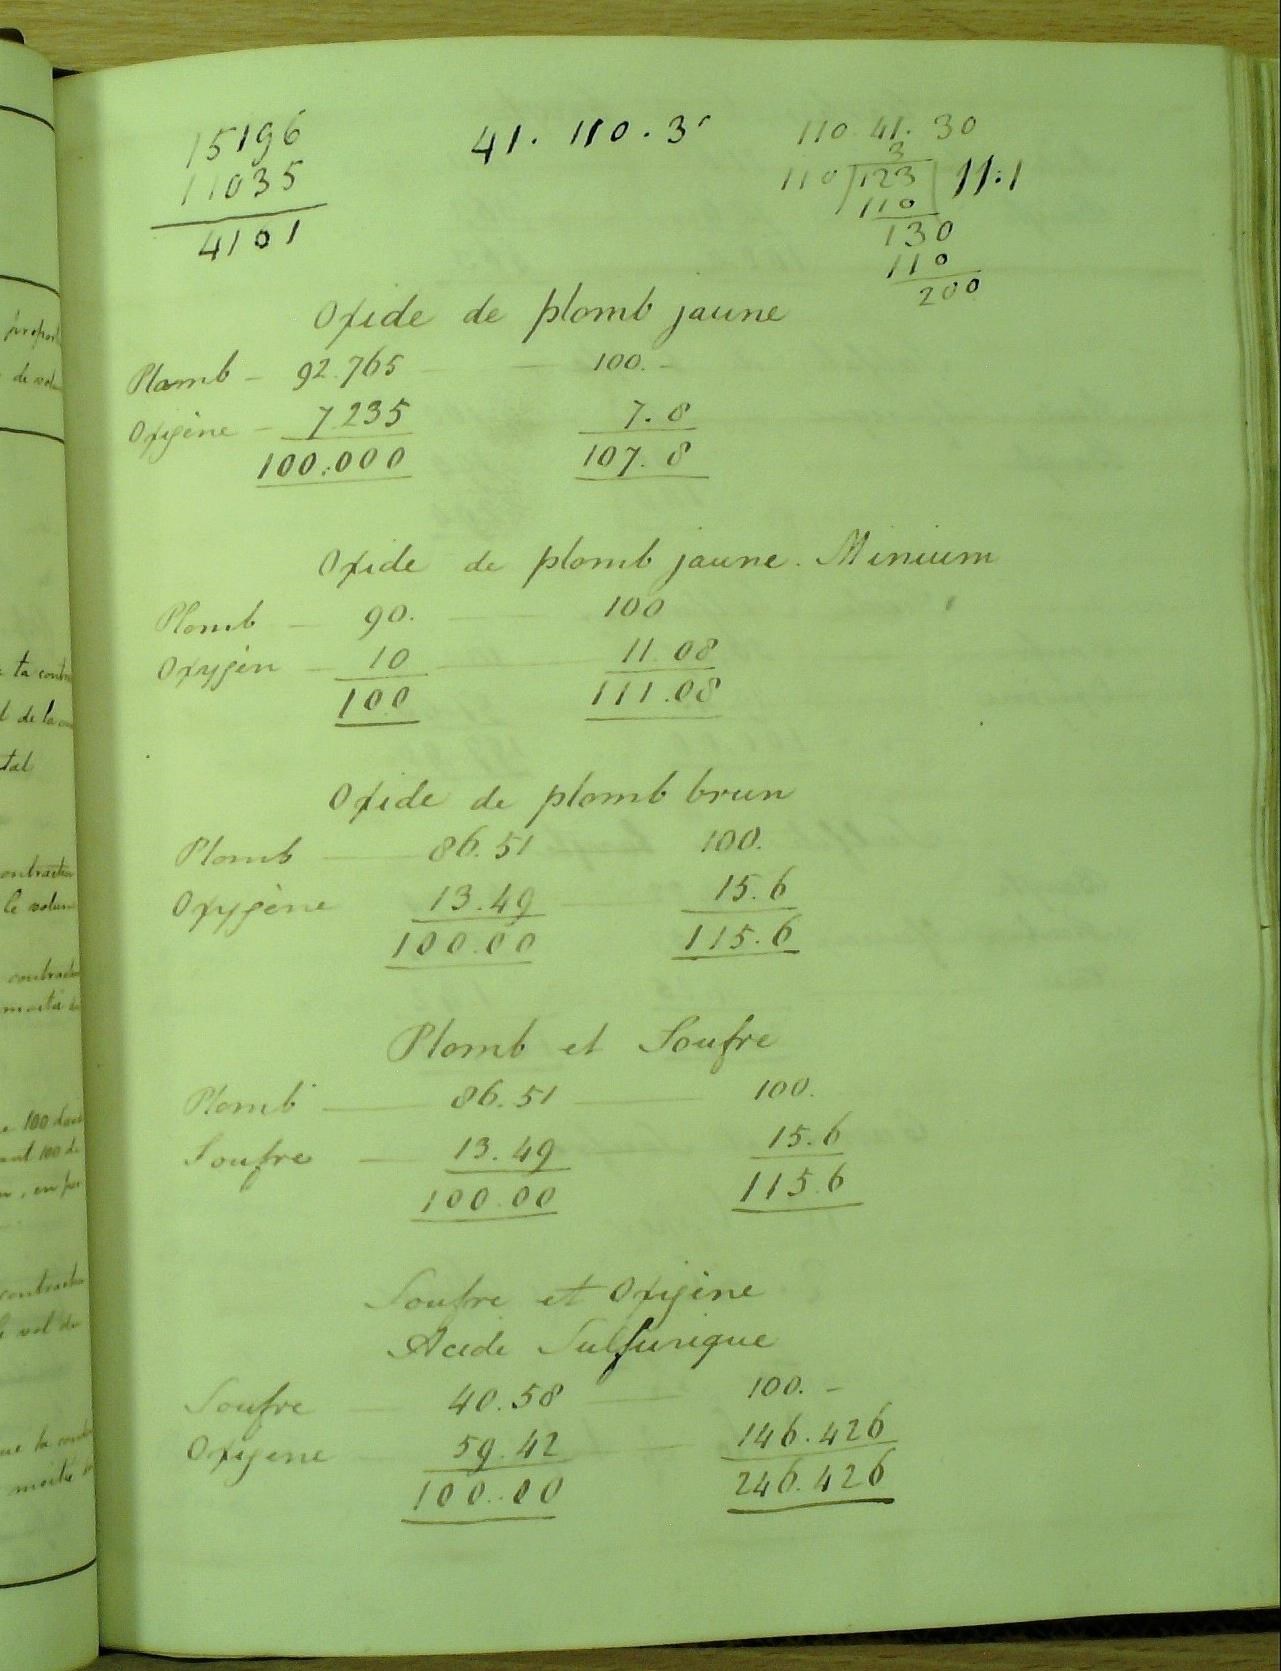 15196
11035
4101
41. 110. 3
110. 41. 30
3
110 123 11:1
110
130
110
200
Oxide de plomb jaune
Plomb - 92.765 - 100. -
Oxigène - 7.235 7.8
100.000 107.8
Oxide de plomb jaune. Minium
Plomb - 90. - 100
Oxygèn - 10 - 11.08
100 111.08
Oxide de plomb brun
Plomb - 86.51 100.
Oxygène 13.49 - 15.6
100.00 115.6
Plomb et Soufre
Plomb - 86.51 - 100.
Soufre - 13.49 15.6
100.00 115.6
Soufre et Oxigène
Acide Sulfurique
Soufre - 40.58 - 100. -
Oxigene - 59.42 - 146.426
100.00 246.426
propor
de vol
ta contr
t de la
tal
contraction
le volum
contract
moitié
100 dan
ant 100 de
contract
vol du
la cont
moitié